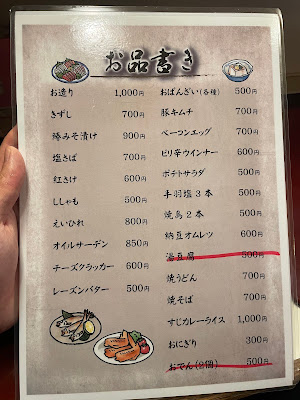 お品書き
お造り 1,000円
きずし 700円
鰆みそ漬け 900円
塩さば 700円
紅さけ 600円
ししゃも 500円
えいひれ 800円
オイルサーデン 850円
チーズクラッカー 600円
レーズンバター 500円
おばんざい(各種) 500円
豚キムチ 700円
ベーコンエッグ 700円
ピリ辛ウインナー 600円
ポテトサラダ 500円
手羽塩3本 500円
焼鳥2本 500円
納豆オムレツ 600円
湯豆腐 500円
焼うどん 700円
焼そば 700円
すじカレーライス 1,000円
おにぎり 300円
おでん(2個) 500円